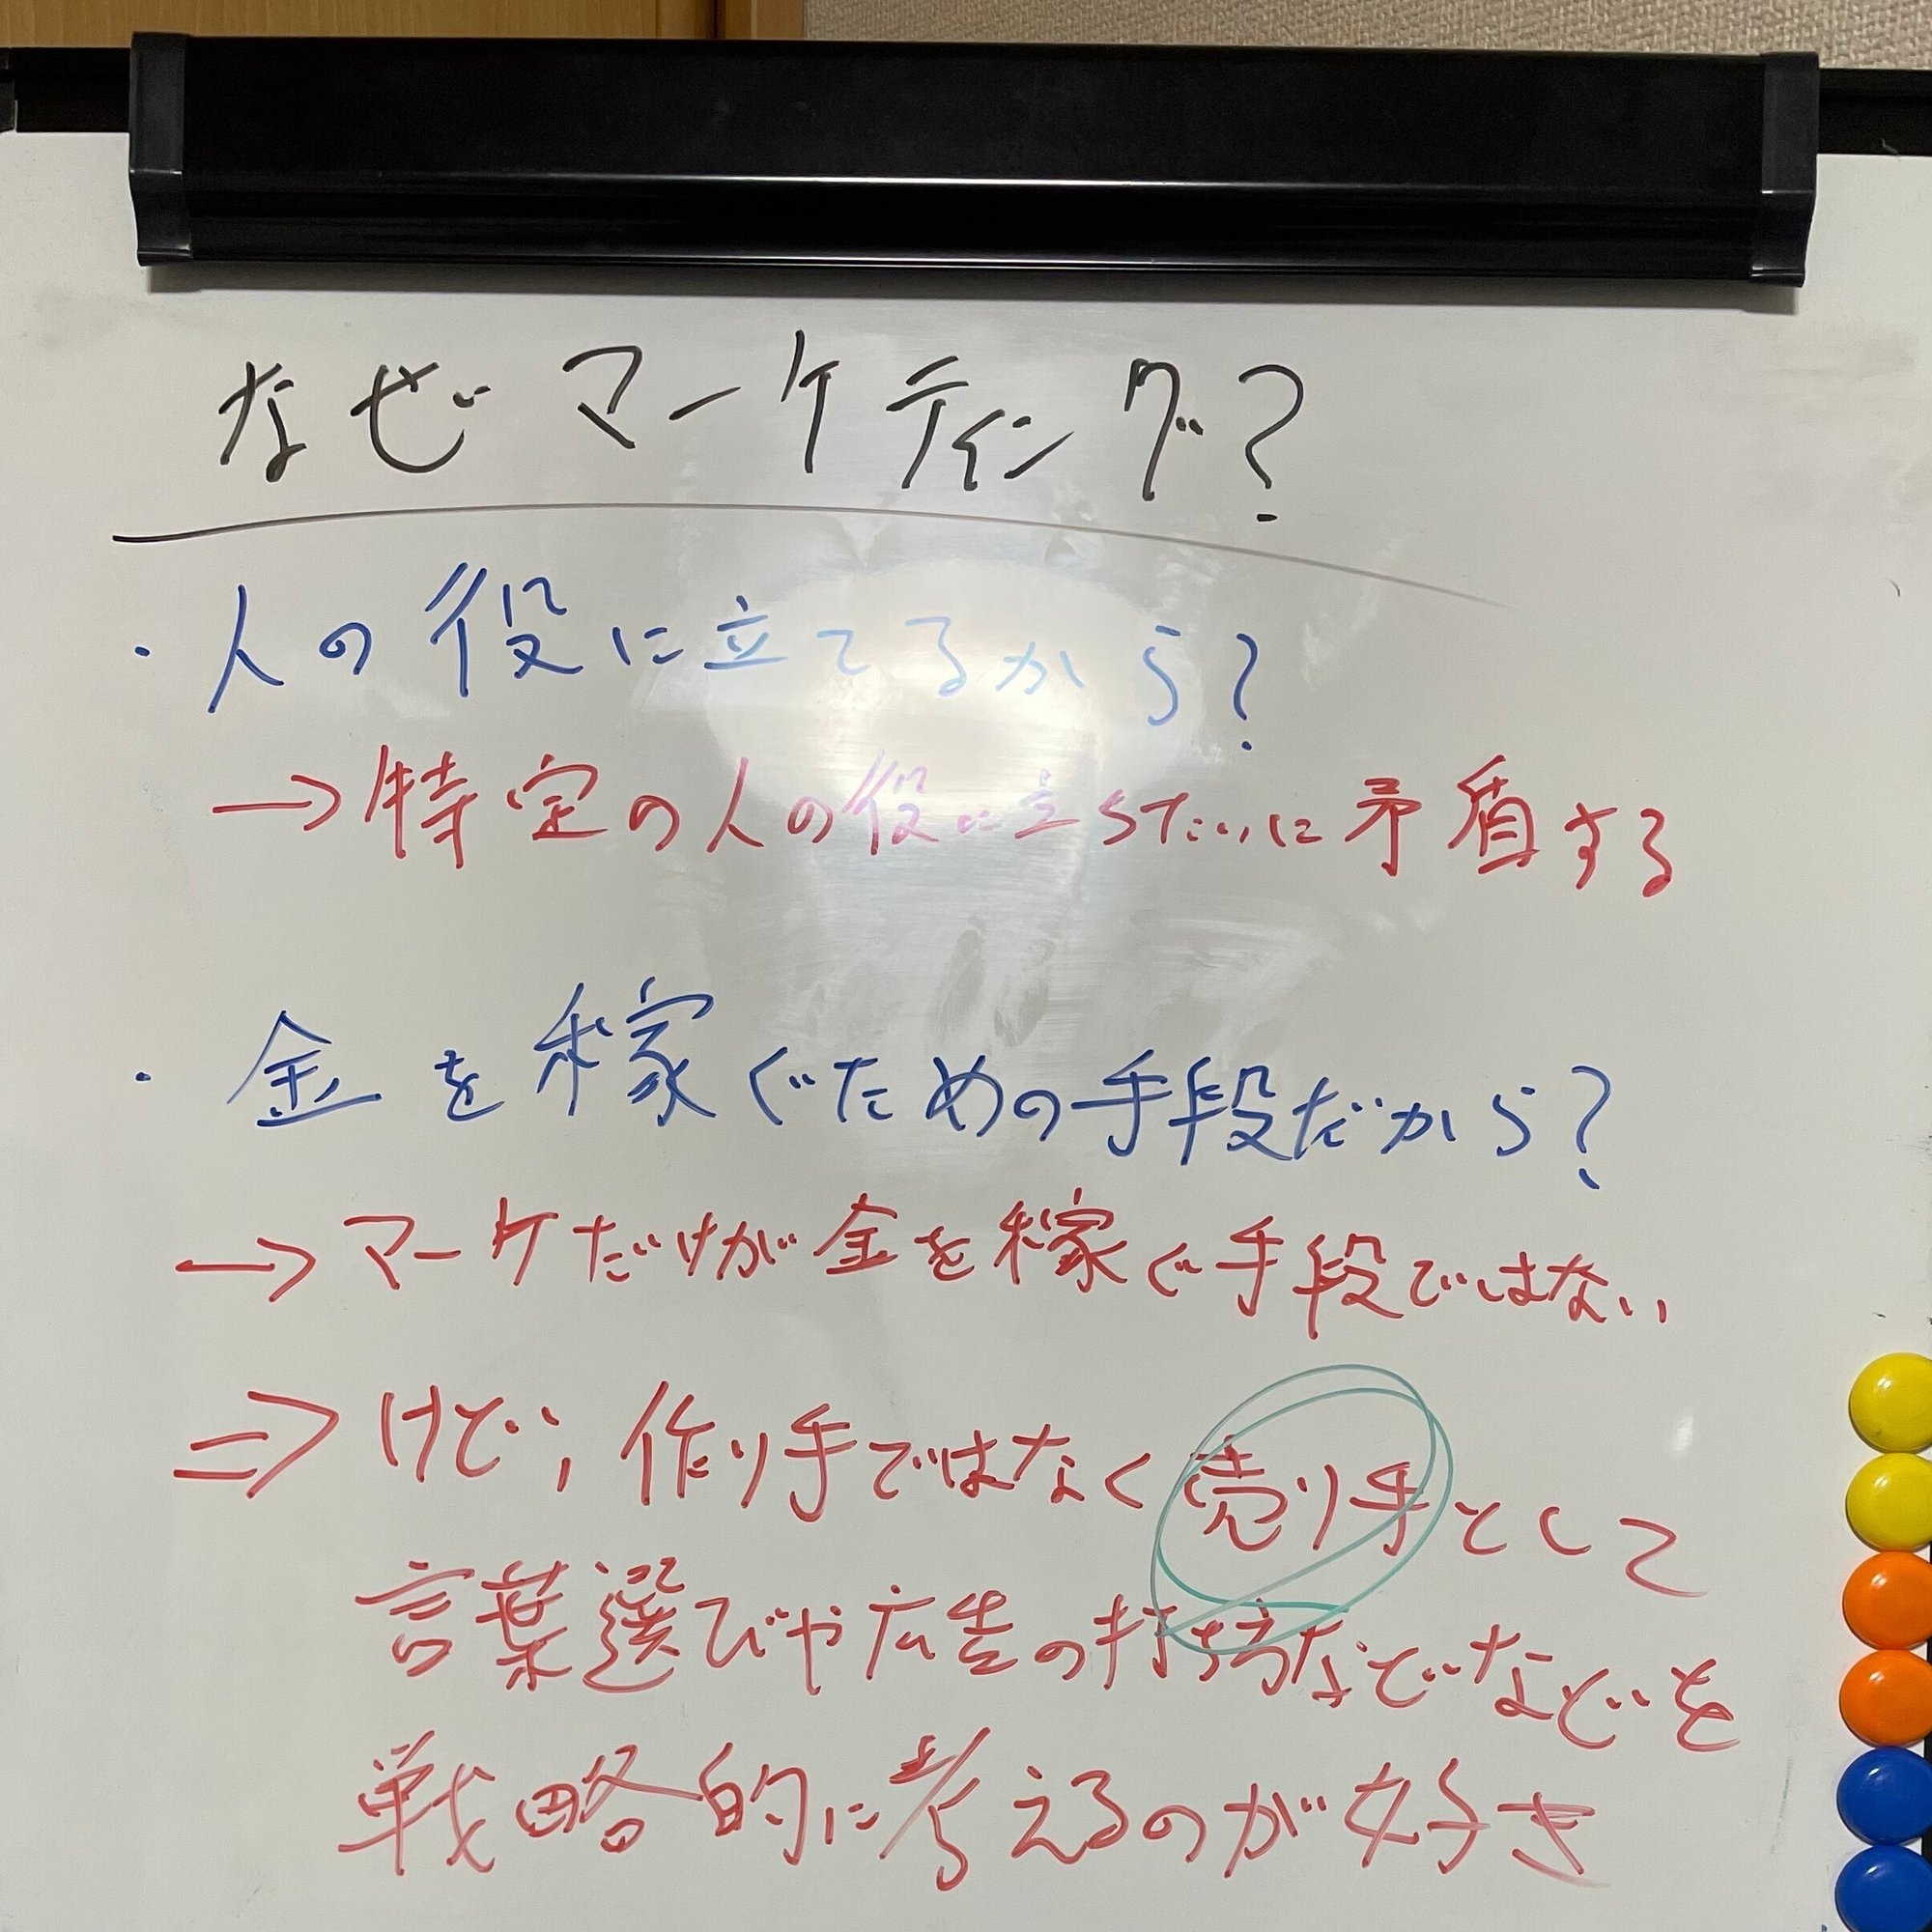 なぜマーケティング?
・人の役に立てるから?
→特定の人の役に立ちたいに矛盾する
・金を稼ぐための手段だから?
→マーケだけが金を稼ぐ手段ではない
⇒けど、作り手ではなく売り手として
言葉選びや広告の打ち方などなどを
戦略的に考えるのが好き